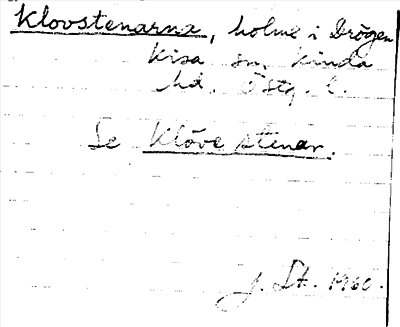 Kloostenarna, holme i Drögen
Kisa sn, Kinda
hd. Östg. l.
Se Klöve stenar.
J. St. 1960.